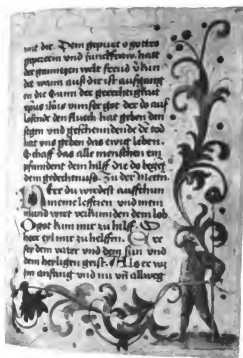 mit dir. Dein gepurt o gottes
gepererin und junckfraw. hatt
der gantzen welt freud v̈kun
det wann auß dir ist aufgang
en die Sunn der gerechtigkait
der do auf
losende den fluech hat geben den
segen und den tod
hat uns geben das ewig leben.
Schaff das alle menschen em
pfinndent dein hilff die do beget
dein gedechtnuß. Zu der metten
Her du wirdest auffthun
meine lefftzen und mein
mund wirt verkünden dein lob
O got kum mir zu hilff.
herr eyl mir zu helffen. Eer
sey dem vater und dem sun und
dem heyligen geist. Als er wz
im anfang und nu un̄ allweg